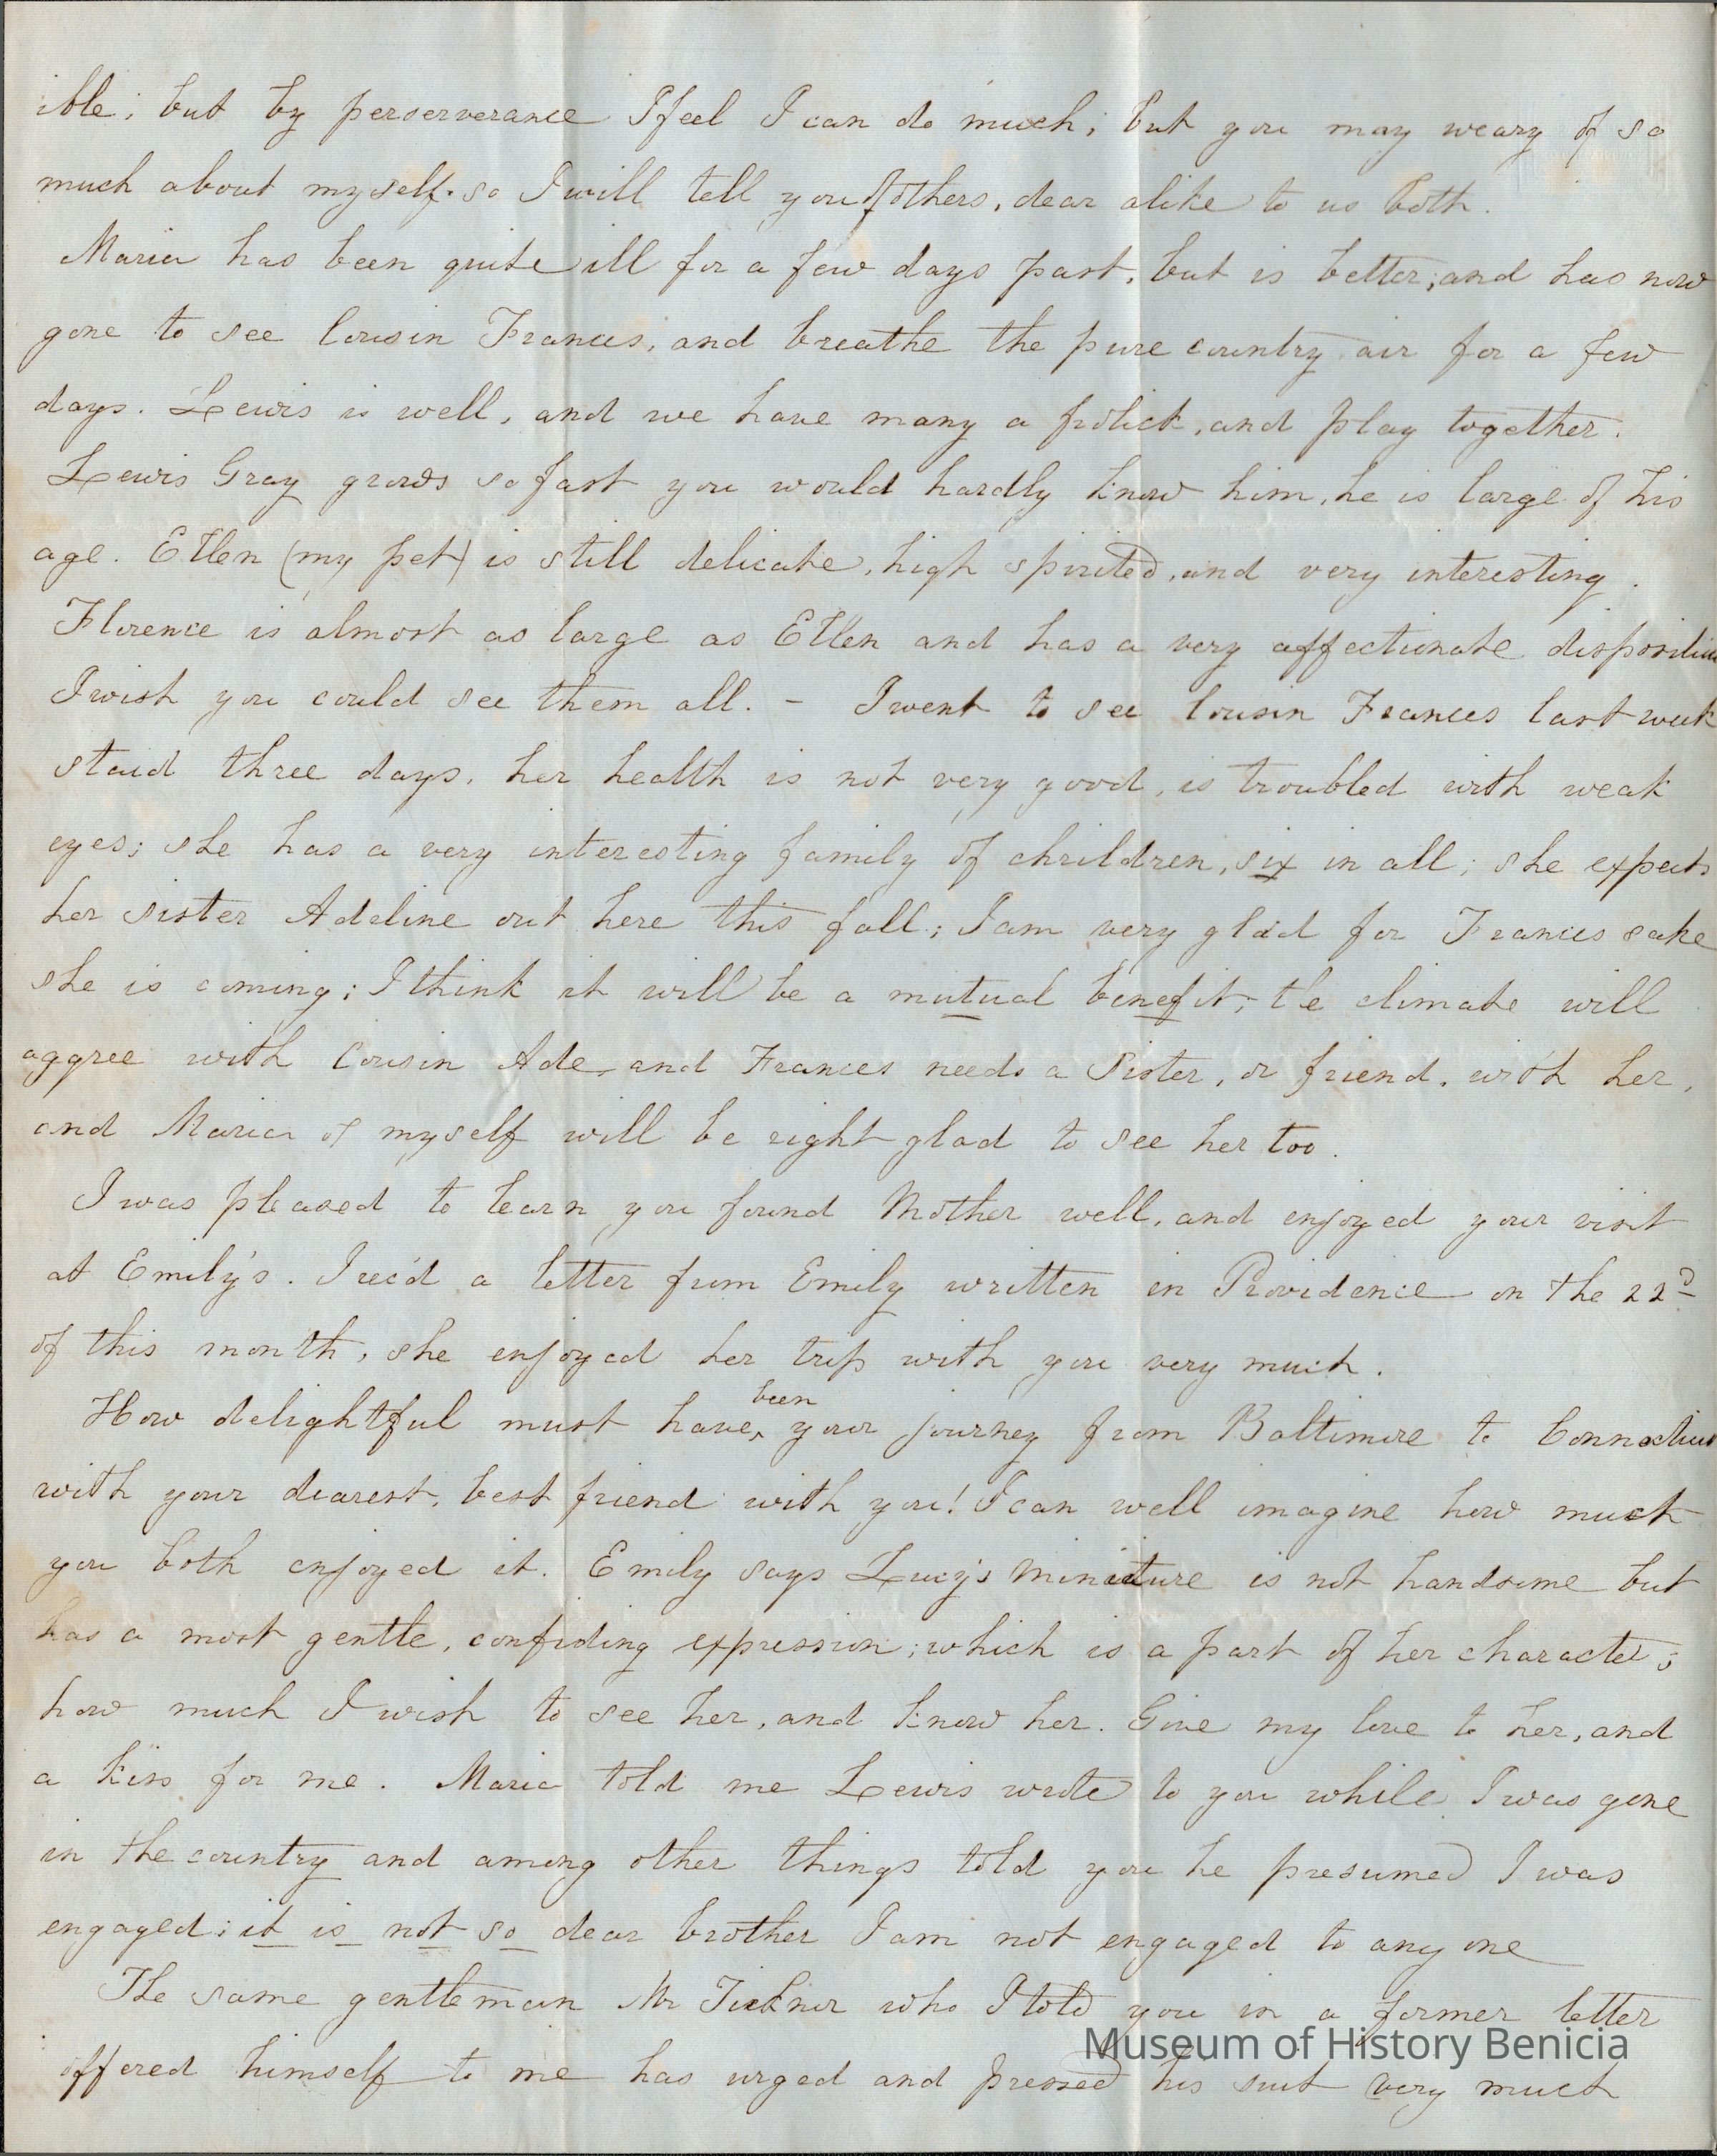 ible; but by perserverance I feel I can do much; but you may weary of so
much about myself. so I will tell you of others, dear alike to us both.
Maria has been quite ill for a few days past, but is better, and has now
gone to see Cousin Frances, and breathe the pure country air for a few
days. Lewis is well, and we have many a frolick, and play together.
Lewis Gray grows so fast you would hardly know him, he is large of his
age. Ellen (my pet) is still delicate, high spirited, and very interesting.
Florence is almost as large as Ellen and has a very affectionate disposition
I wish you could see them all. - I went to see Cousin Frances last week
staid three days, her health is not very good, is troubled with weak
eyes; she has a very interesting family of chrildren, six in all; she expects
her sister Adeline out here this fall; I am very glad for Frances sake
she is coming; I think it will be a mutual benefit; the climate will
aggree with Cousin Ade, and Frances needs a Sister, or friend, with her,
and Maria & myself will be right glad to see her too.
I was pleased to learn you found Mother well, and enjoyed your visit
at Emily's. I rec'd a letter from Emily written in Providence on the 22d
of this month, she enjoyed her trip with you very much.
How delightful must have been your journey from Baltimore to Connecticut
with your dearest, best friend with you! I can well imagine how much
you both enjoyed it. Emily says Lucy's miniature is not handsome but
has a most gentle, confiding expression; which is a part of her character;
how much I wish to see her, and know her. Give my love to her, and
a kiss for me. Maria told me Lewis wrote to you while I was gone
in the country and among other things told you he presumed I was
engaged; it is not so dear brother I am not engaged to any one
The same gentleman Mr Ticknor who I told you in a former letter
offered himself to me has urged and pressed his suit very much
Museum of History Benicia